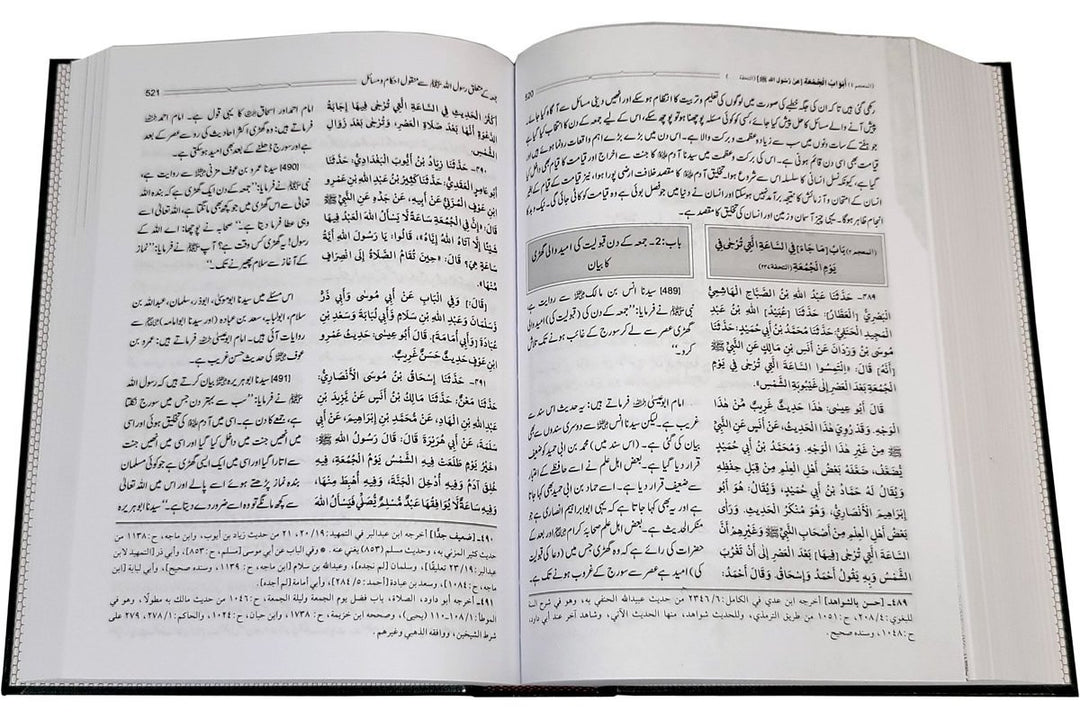 (المعجم ١) أَبْوَابُ الْجُمُعَةِ [عَنْ رَسُولِ اللهِ ﷺ] (التحفة ...)
520
رکھی گئی ہیں تاکہ ان کی جگہ خطبے کی صورت میں لوگوں کی تعلیم و تربیت کا انتظام ہو سکے اور انھیں دینی مسائل سے آگاہ کیا جائے۔
پیش آنے والے مسائل کا حل پیش کیا جائے، کسی کو کوئی مسئلہ پوچھنا ہو تو پوچھ سکے، اس کے لیے جمعہ کے دن کا انتخاب کیا گیا ہے
جو ہفتے کے سات دنوں میں سب سے زیادہ عظمت و برکت والا ہے۔ اس دن میں بڑے بڑے اہم واقعات رونما ہوئے ہیں اور
قیامت بھی اسی دن قائم ہونی ہے۔ اس کی برکت و عظمت میں سیدنا آدم علیہ السلام کا جنت سے اخراج اور قیامت کا قیام بھی داخل کیا
گیا ہے، کیونکہ نسل انسانی کا سلسلہ اس سے شروع ہوا۔ تخلیق آدم علیہ السلام کا مقصد خلافت ارضی پورا ہوا، نیز قیامت کے قیام کے بغیر
انسان کے امتحان و آزمائش کا نتیجہ برآمد نہیں ہو سکتا اور انسان نے دنیا میں جو فصل بوئی ہے وہ قیامت کو کاٹی جائے گی۔ نیک و بد کا
انجام ظاہر ہوگا۔ یہی چیز آسمان و زمین اور انسان کی تخلیق کا مقصد ہے۔
(المعجم ٢) بَابُ [مَا جَاءَ] فِي السَّاعَةِ الَّتِي تُرْجَى فِي
يَوْمِ الْجُمُعَةِ (التحفة ٢٣٧)
٤٨٩- حَدَّثَنَا عَبْدُ اللهِ بْنُ الصَّبَّاحِ الْهَاشِمِيُّ
الْبَصْرِيُّ [الْعَطَّارُ]: حَدَّثَنَا [عُبَيْدُ] اللهِ بْنُ عَبْدِ
الْمَجِيدِ الْحَنَفِيُّ: حَدَّثَنَا مُحَمَّدُ بْنُ أَبِي حُمَيْدٍ: حَدَّثَنَا
مُوسَى بْنُ وَرْدَانَ عَنْ أَنَسِ بْنِ مَالِكٍ عَنِ النَّبِيِّ ﷺ
[أَنَّهُ] قَالَ: «الْتَمِسُوا السَّاعَةَ الَّتِي تُرْجَى فِي يَوْمِ
الْجُمُعَةِ بَعْدَ الْعَصْرِ إِلَى غَيْبُوبَةِ الشَّمْسِ».
قَالَ أَبُو عِيسَى: هَذَا حَدِيثٌ غَرِيبٌ مِنْ هَذَا
الْوَجْهِ. وَقَدْ رُوِيَ هَذَا الْحَدِيثُ، عَنْ أَنَسٍ عَنِ النَّبِيِّ
ﷺ مِنْ غَيْرِ هَذَا الْوَجْهِ. وَمُحَمَّدُ بْنُ أَبِي حُمَيْدٍ
يُضَعَّفُ، ضَعَّفَهُ بَعْضُ أَهْلِ الْعِلْمِ مِنْ قِبَلِ حِفْظِهِ
وَيُقَالُ لَهُ حَمَّادُ بْنُ أَبِي حُمَيْدٍ، وَيُقَالُ: هُوَ أَبُو
إِبْرَاهِيمَ الْأَنْصَارِيُّ، وَهُوَ مُنْكَرُ الْحَدِيثِ. وَرَأَى
بَعْضُ أَهْلِ الْعِلْمِ مِنْ أَصْحَابِ النَّبِيِّ ﷺ وَغَيْرِهِمْ أَنَّ
السَّاعَةَ الَّتِي تُرْجَى [فِيهَا] بَعْدَ الْعَصْرِ إِلَى أَنْ تَغْرُبَ
الشَّمْسُ وَبِهِ يَقُولُ أَحْمَدُ وَإِسْحَاقُ. وَقَالَ أَحْمَدُ:
باب: 2- جمعہ کے دن قبولیت کی امید والی گھڑی
کا بیان
[489] سیدنا انس بن مالک رضی اللہ عنہ سے روایت ہے
نبی ﷺ نے فرمایا: ”جمعہ کے دن کی (قبولیت کی) امید والی
گھڑی عصر سے لے کر سورج کے غائب ہونے تک تلاش
کرو۔“
امام ابوعیسیٰ رحمہ اللہ فرماتے ہیں: یہ حدیث اس سند سے
غریب ہے۔ لیکن سیدنا انس رضی اللہ عنہ سے دوسری سندوں سے بھی
بیان کی گئی ہے۔ (اس سند میں) محمد بن ابی حمید کو ضعیف
قرار دیا گیا ہے۔ بعض اہل علم نے اسے حافظے کے اعتبار
سے ضعیف قرار دیا ہے۔ اسے حماد بن ابی حمید بھی کہا جاتا
ہے اور یہ بھی کہا جاتا ہے کہ یہی ابوابراہیم انصاری ہے جو
منکر الحدیث ہے۔ بعض اہل علم صحابہ کرام رضی اللہ عنہم اور بعد کے
حضرات کی رائے ہے کہ وہ گھڑی جس میں (دعا کی قبولیت
کی) امید ہے عصر سے سورج کے غروب ہونے تک ہے۔
٤٨٩- [حسن بالشواهد] أخرجه ابن عدي في الكامل: ٢٣٤٦/٦ من حديث عبيدالله الحنفي به، وهو في شرح السنة
للبغوي: ٢٠٨/٤، ح: ١٠٥١ من طريق الترمذي، وللحديث شواهد، منها الحديث الآتي، وشاهد آخر عند أبي داود،
ح: ١٠٤٨، وسنده صحيح.
جمعہ کے متعلق رسول اللہ ﷺ سے منقول احکام و مسائل
521
أَكْثَرُ الْحَدِيثِ فِي السَّاعَةِ الَّتِي تُرْجَى فِيهَا إِجَابَةُ
الدَّعْوَةِ أَنَّهَا بَعْدَ صَلَاةِ الْعَصْرِ، وَتُرْجَى بَعْدَ زَوَالِ
الشَّمْسِ.
٤٩٠- حَدَّثَنَا زِيَادُ بْنُ أَيُّوبَ الْبَغْدَادِيُّ: حَدَّثَنَا
أَبُو عَامِرٍ الْعَقَدِيُّ: حَدَّثَنَا كَثِيرُ بْنُ عَبْدِ اللهِ بْنِ عَمْرِو
ابْنِ عَوْفٍ الْمُزَنِيُّ عَنْ أَبِيهِ، عَنْ جَدِّهِ عَنِ النَّبِيِّ ﷺ
قَالَ: «إِنَّ فِي الْجُمُعَةِ سَاعَةً لَا يَسْأَلُ اللهَ الْعَبْدُ فِيهَا
شَيْئًا إِلَّا آتَاهُ اللهُ إِيَّاهُ»، قَالُوا: يَا رَسُولَ اللهِ أَيَّةُ
سَاعَةٍ هِيَ؟ قَالَ: «حِينَ تُقَامُ الصَّلَاةُ إِلَى انْصِرَافٍ
مِنْهَا».
[قَالَ:] وَفِي الْبَابِ عَنْ أَبِي مُوسَى وَأَبِي ذَرٍّ
وَسَلْمَانَ وَعَبْدِ اللهِ بْنِ سَلَامٍ وَأَبِي لُبَابَةَ وَسَعْدِ بْنِ
عُبَادَةَ [وَأَبِي أُمَامَةَ]. قَالَ أَبُو عِيسَى: حَدِيثُ عَمْرِو
ابْنِ عَوْفٍ حَدِيثٌ حَسَنٌ غَرِيبٌ.
٤٩١- حَدَّثَنَا إِسْحَاقُ بْنُ مُوسَى الْأَنْصَارِيُّ:
حَدَّثَنَا مَعْنٌ: حَدَّثَنَا مَالِكُ بْنُ أَنَسٍ عَنْ يَزِيدَ بْنِ
عَبْدِاللهِ بْنِ الْهَادِ، عَنْ مُحَمَّدِ بْنِ إِبْرَاهِيمَ، عَنْ أَبِي
سَلَمَةَ، عَنْ أَبِي هُرَيْرَةَ قَالَ: قَالَ رَسُولُ اللهِ ﷺ:
«خَيْرُ يَوْمٍ طَلَعَتْ فِيهِ الشَّمْسُ يَوْمُ الْجُمُعَةِ، فِيهِ
خُلِقَ آدَمُ وَفِيهِ أُدْخِلَ الْجَنَّةَ، وَفِيهِ أُهْبِطَ مِنْهَا،
وَفِيهِ سَاعَةٌ لَا يُوَافِقُهَا عَبْدٌ مُسْلِمٌ يُصَلِّي فَيَسْأَلُ اللهَ
امام احمد اور اسحاق رحمہما اللہ کا یہی قول ہے۔ امام احمد رحمہ اللہ
فرماتے ہیں: وہ گھڑی اکثر احادیث کی رو سے عصر کے بعد
ہے اور سورج ڈھلنے کے بعد بھی امید ہو سکتی ہے۔
[490] سیدنا عمرو بن عوف مزنی رضی اللہ عنہ سے روایت ہے،
نبی ﷺ نے فرمایا: ”جمعہ کے دن ایک گھڑی ہے کہ بندہ اللہ
تعالیٰ سے اس گھڑی میں جو کچھ بھی مانگتا ہے، اللہ تعالیٰ اسے
وہی عطا فرما دیتا ہے۔“ صحابہ نے پوچھا: اے اللہ کے
رسول! یہ گھڑی کس وقت ہے؟ آپ ﷺ نے فرمایا: ”نماز
کے آغاز سے سلام پھیرنے تک۔“
اس مسئلے میں سیدنا ابوموسیٰ، ابوذر، سلمان، عبداللہ بن
سلام، ابولبابہ، سعد بن عبادہ (اور سیدنا ابوامامہ) رضی اللہ عنہم سے
روایات آئی ہیں۔ امام ابوعیسیٰ رحمہ اللہ فرماتے ہیں: عمرو بن
عوف رضی اللہ عنہ کی حدیث حسن غریب ہے۔
[491] سیدنا ابوہریرہ رضی اللہ عنہ بیان کرتے ہیں کہ رسول اللہ
ﷺ نے فرمایا: ”سب سے بہتر دن جس میں سورج نکلتا
ہے، جمعے کا دن ہے۔ اسی میں آدم علیہ السلام کی تخلیق ہوئی اور اسی
میں انھیں جنت میں داخل کیا گیا اور اسی میں انھیں جنت
سے اتارا گیا اور اسی میں ایک ایسی گھڑی ہے جو کوئی مسلمان
بندہ نماز پڑھتے ہوئے اسے پالے اور اس میں اللہ تعالیٰ
سے کچھ مانگے تو وہ اسے ضرور دے دیتا ہے۔“ سیدنا ابوہریرہ
٤٩٠- [ضعيف جدًّا] أخرجه ابن عبدالبر في التمهيد: ٢٠/١٩، ٢١ من حديث زياد بن أيوب، وابن ماجه، ح: ١١٣٨ من
حديث كثير المزني به، وحديث مسلم (٨٥٣) يغني عنه. * وفي الباب عن أبي موسى [مسلم، ح: ٨٥٣]، وأبي ذر [لابن
عبدالبر: ٢٣/١٩ تعليقًا]، وسلمان [لم نجده]، وعبدالله بن سلام [ابن ماجه، ح: ١١٣٩، وسنده صحيح]، وأبي لبابة [ابن
ماجه، ح: ١٠٨٤]، وسعد بن عبادة [أحمد: ٢٨٤/٥]، وأبي أمامة [لم أجده].
٤٩١- أخرجه أبو داود، الصلاة، باب فضل يوم الجمعة وليلة الجمعة، ح: ١٠٤٦ من حديث مالك به مطولًا، وهو في
الموطأ: ١٠٨/١-١١٠ (يحيى)، وصححه ابن خزيمة، ح: ١٧٣٨، وابن حبان، ح: ١٠٢٤، والحاكم: ٢٧٨/١، ٢٧٩ على
شرط الشيخين، ووافقه الذهبي وغيرهم.